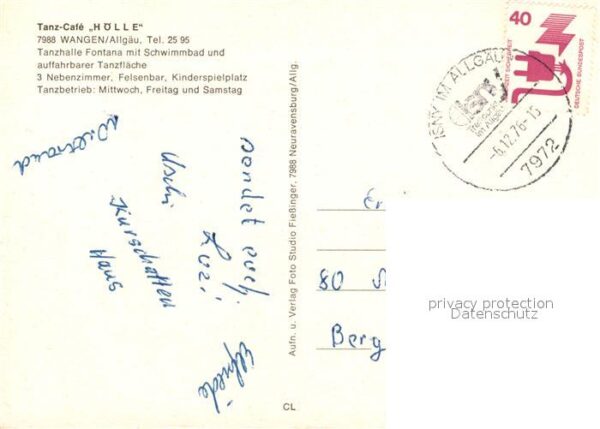 Tanz-Café „HÖLLE"
7988 WANGEN/Allgäu, Tel. 25 95
Tanzhalle Fontana mit Schwimmbad und
auffahrbarer Tanzfläche
3 Nebenzimmer, Felsenbar, Kinderspielplatz
Tanzbetrieb: Mittwoch, Freitag und Samstag
sendet euch
Luzi
Uschi
Kurschatten
Hans
Wiltraud
Elfriede
Aufn. u. Verlag Foto Studio Fießinger, 7988 Neuravensburg/Allg.
CL
40
DEUTSCHE BUNDESPOST
ISNY IM ALLGÄU
im Allgäu
-6.12.76-15
7972
80
Berg
privacy protection
Datenschutz